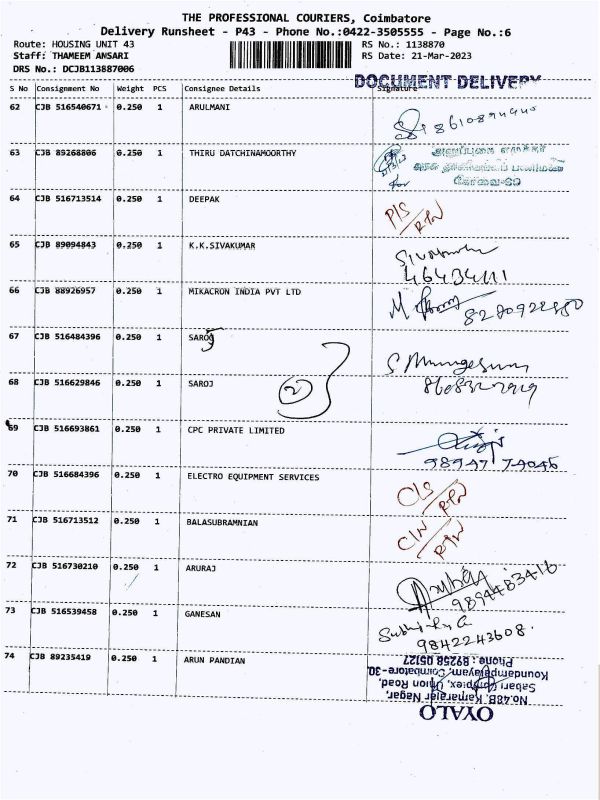 THE PROFESSIONAL COURIERS, Coimbatore
Delivery Runsheet - P43 - Phone No.:0422-3505555 - Page No.:6
Route: HOUSING UNIT 43
RS No.: 1138870
Staff: THAMEEM ANSARI
RS Date: 21-Mar-2023
DRS No.: DCJB113887006
DOCUMENT DELIVERY
S No Consignment No Weight PCS Consignee Details Signature
62 CJB 516540671 0.250 1 ARULMANI
63 CJB 89268806 0.250 1 THIRU DATCHINAMOORTHY
கோவை-
64 CJB 516713514 0.250 1 DEEPAK
65 CJB 89094843 0.250 1 K.K.SIVAKUMAR
66 CJB 88926957 0.250 1 MIKACRON INDIA PVT LTD
67 CJB 516484396 0.250 1 SAROJ
68 CJB 516629846 0.250 1 SAROJ
2
69 CJB 516693861 0.250 1 CPC PRIVATE LIMITED
70 CJB 516684396 0.250 1 ELECTRO EQUIPMENT SERVICES
71 CJB 516713512 0.250 1 BALASUBRAMNIAN
72 CJB 516730210 0.250 1 ARURAJ
9894483416
73 CJB 516539458 0.250 1 GANESAN
9842243608.
74 CJB 89235419 0.250 1 ARUN PANDIAN
OYALO
No.48B, Kamarajar Nagar,
Sabari Complex, Union Road,
Koundampalayam, Coimbatore-30.
Phone: 89258 05127